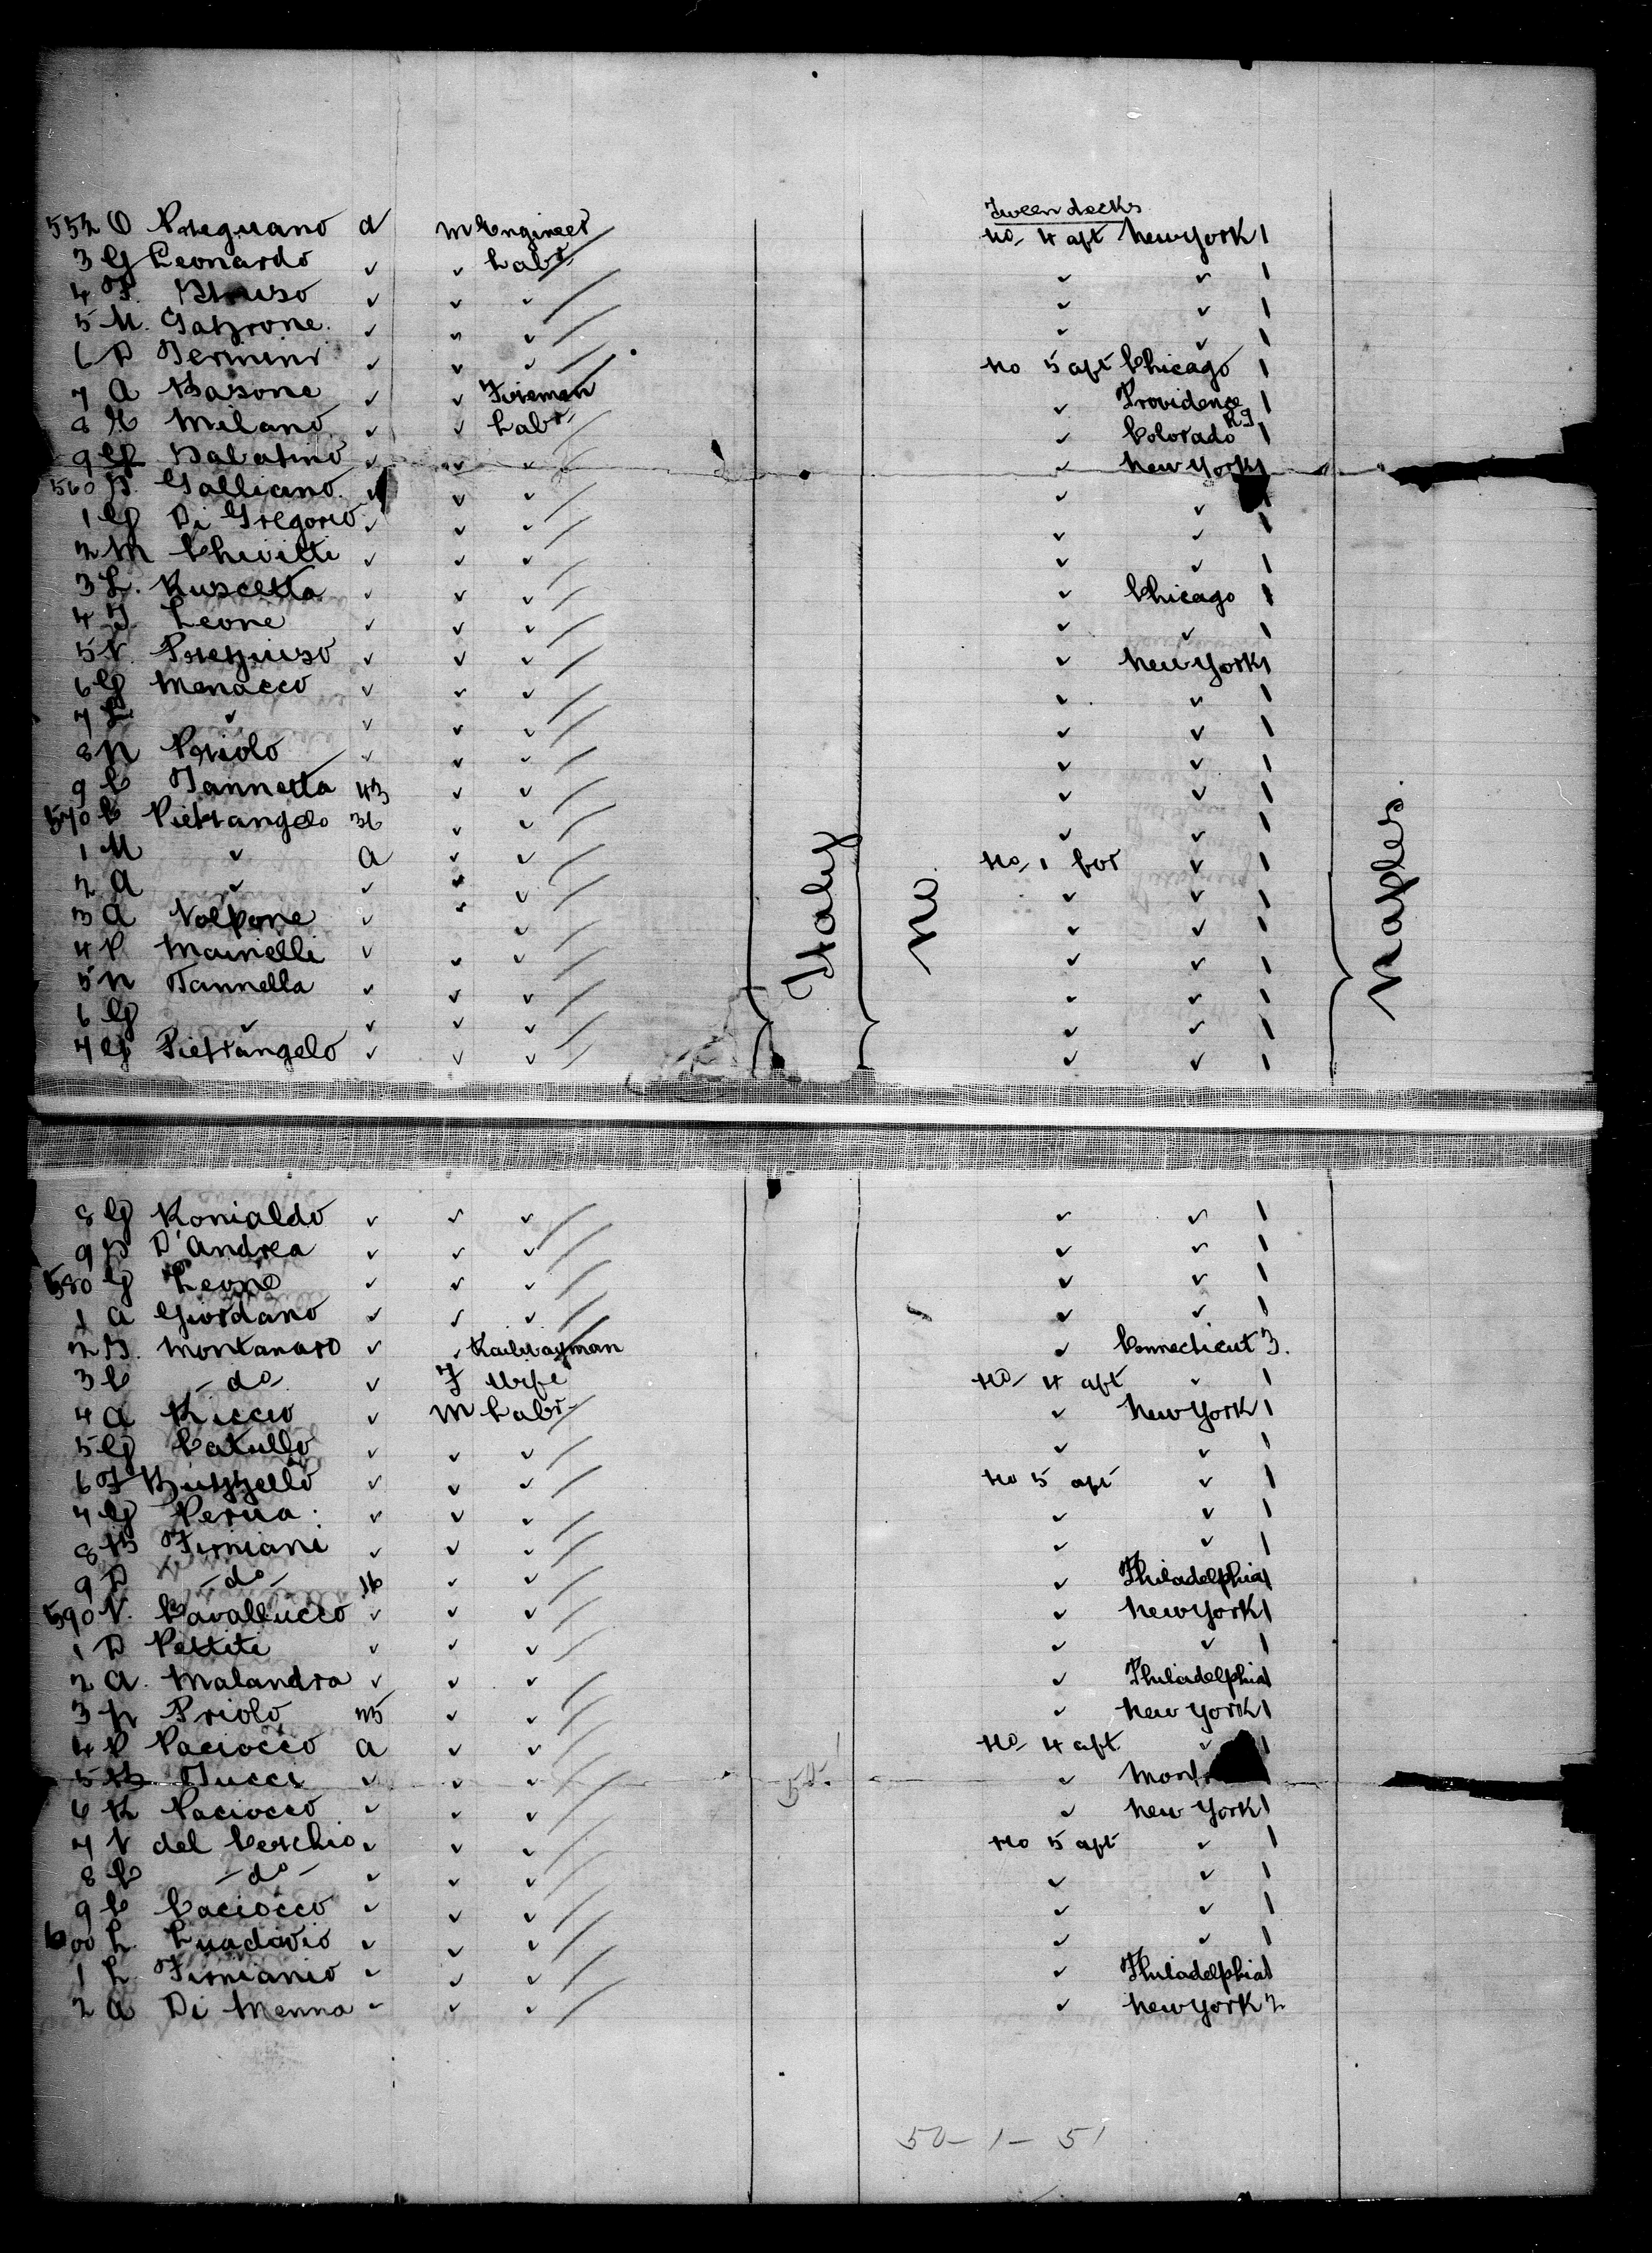 Tween decks
552 O Preguano a m Engineer No 4 aft New York 1
3 G Leonardo ✓ ✓ Labr ✓ ✓ 1
4 F. ✓ ✓ ✓ ✓ ✓ 1
5 M. ✓ ✓ ✓ ✓ ✓ 1
6 D Termini ✓ ✓ ✓ No 5 aft Chicago 1
7 A Basone ✓ ✓ Fireman ✓ Providence R I 1
8 Milano ✓ ✓ Labr ✓ Colorado 1
9 G ✓ ✓ ✓ ✓ New York 1
560 Galliano ✓ ✓ ✓ ✓ ✓ 1
1 G Di Gregorio ✓ ✓ ✓ ✓ ✓ 1
2 M Chivitti ✓ ✓ ✓ ✓ ✓ 1
3 L. Ruscetta ✓ ✓ ✓ ✓ Chicago 1
4 Leone ✓ ✓ ✓ ✓ ✓ 1
5 V. ✓ ✓ ✓ ✓ New York 1
6 G Menacco ✓ ✓ ✓ ✓ ✓ 1
7 L ✓ ✓ ✓ ✓ ✓ ✓ 1
8 N Priolo ✓ ✓ ✓ ✓ ✓ 1
9 C Iannetta 43 ✓ ✓ ✓ ✓ 1
570 C Pietrangelo 36 ✓ ✓ ✓ ✓ 1
1 M ✓ a ✓ ✓ No 1 for ✓ 1
2 A ✓ ✓ ✓ ✓ ✓ ✓ 1
3 A Volpone ✓ ✓ ✓ ✓ ✓ 1
4 P Mainelli ✓ ✓ ✓ ✓ ✓ 1
5 N Iannella ✓ ✓ ✓ ✓ ✓ 1
6 G ✓ ✓ ✓ ✓ ✓ ✓ 1
7 G Pietrangelo ✓ ✓ ✓ ✓ ✓ 1
Italy
No
Naples.
8 G Ronialdo ✓ ✓ ✓ ✓ ✓ 1
9 D'Andrea ✓ ✓ ✓ ✓ ✓ 1
580 G Leone ✓ ✓ ✓ ✓ ✓ 1
1 A Giordano ✓ ✓ ✓ ✓ ✓ 1
2 Montanaro ✓ ✓ Railwayman ✓ Connecticut 3.
3 C - do - ✓ F Wife No 4 aft ✓ 1
4 A Riccio ✓ M Labr ✓ New York 1
5 G Catullo ✓ ✓ ✓ ✓ ✓ 1
6 F Buzzello ✓ ✓ ✓ No 5 aft ✓ 1
7 G Perua ✓ ✓ ✓ ✓ ✓ 1
8 B Firniani ✓ ✓ ✓ ✓ ✓ 1
9 D - do - 16 ✓ ✓ ✓ Philadelphia 1
590 V. Cavallucco ✓ ✓ ✓ ✓ New York 1
1 D Pettiti ✓ ✓ ✓ ✓ ✓ 1
2 A. Malandra ✓ ✓ ✓ ✓ Philadelphia 1
3 Priolo 45 ✓ ✓ ✓ New York 1
4 P Paciocco a ✓ ✓ No 4 aft ✓ 1
5 B Tucci ✓ ✓ ✓ ✓
6 R Paciocco ✓ ✓ ✓ ✓ New York 1
7 V del Vecchio ✓ ✓ ✓ No 5 aft ✓ 1
8 C - do - ✓ ✓ ✓ ✓ ✓ 1
9 C Caciocco ✓ ✓ ✓ ✓ ✓ 1
600 L. Luadovio ✓ ✓ ✓ ✓ ✓ 1
1 L. Firnianio ✓ ✓ ✓ ✓ Philadelphia 1
2 A Di Menna ✓ ✓ ✓ ✓ New York 2
50-1-51